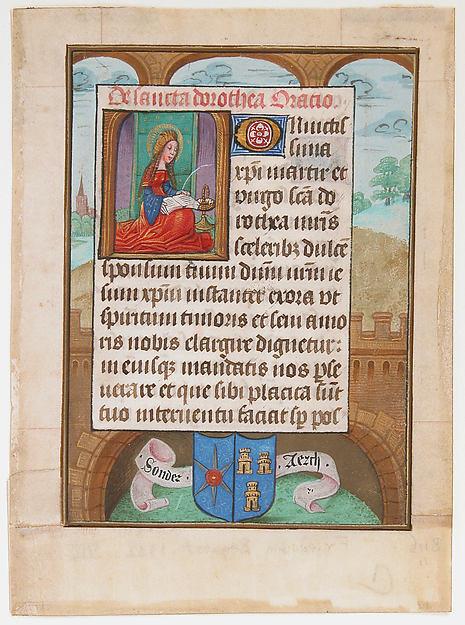 De sancta dorothea Oratio.
O Inuictis
sima
xpi martir et
uirgo scā do
rothea nr̄is
sceleribꝫ dulcē
sponsum tuum dnm nr̄m ie
sum xpm instanter exora vt
spiritum timoris et sem amo
ris nobis elargire dignetur:
in eiusqꝫ mandatis nos pse
uerare et que sibi placita sūt
tuo interuentu faciat sp pos
Sonder
Aerch